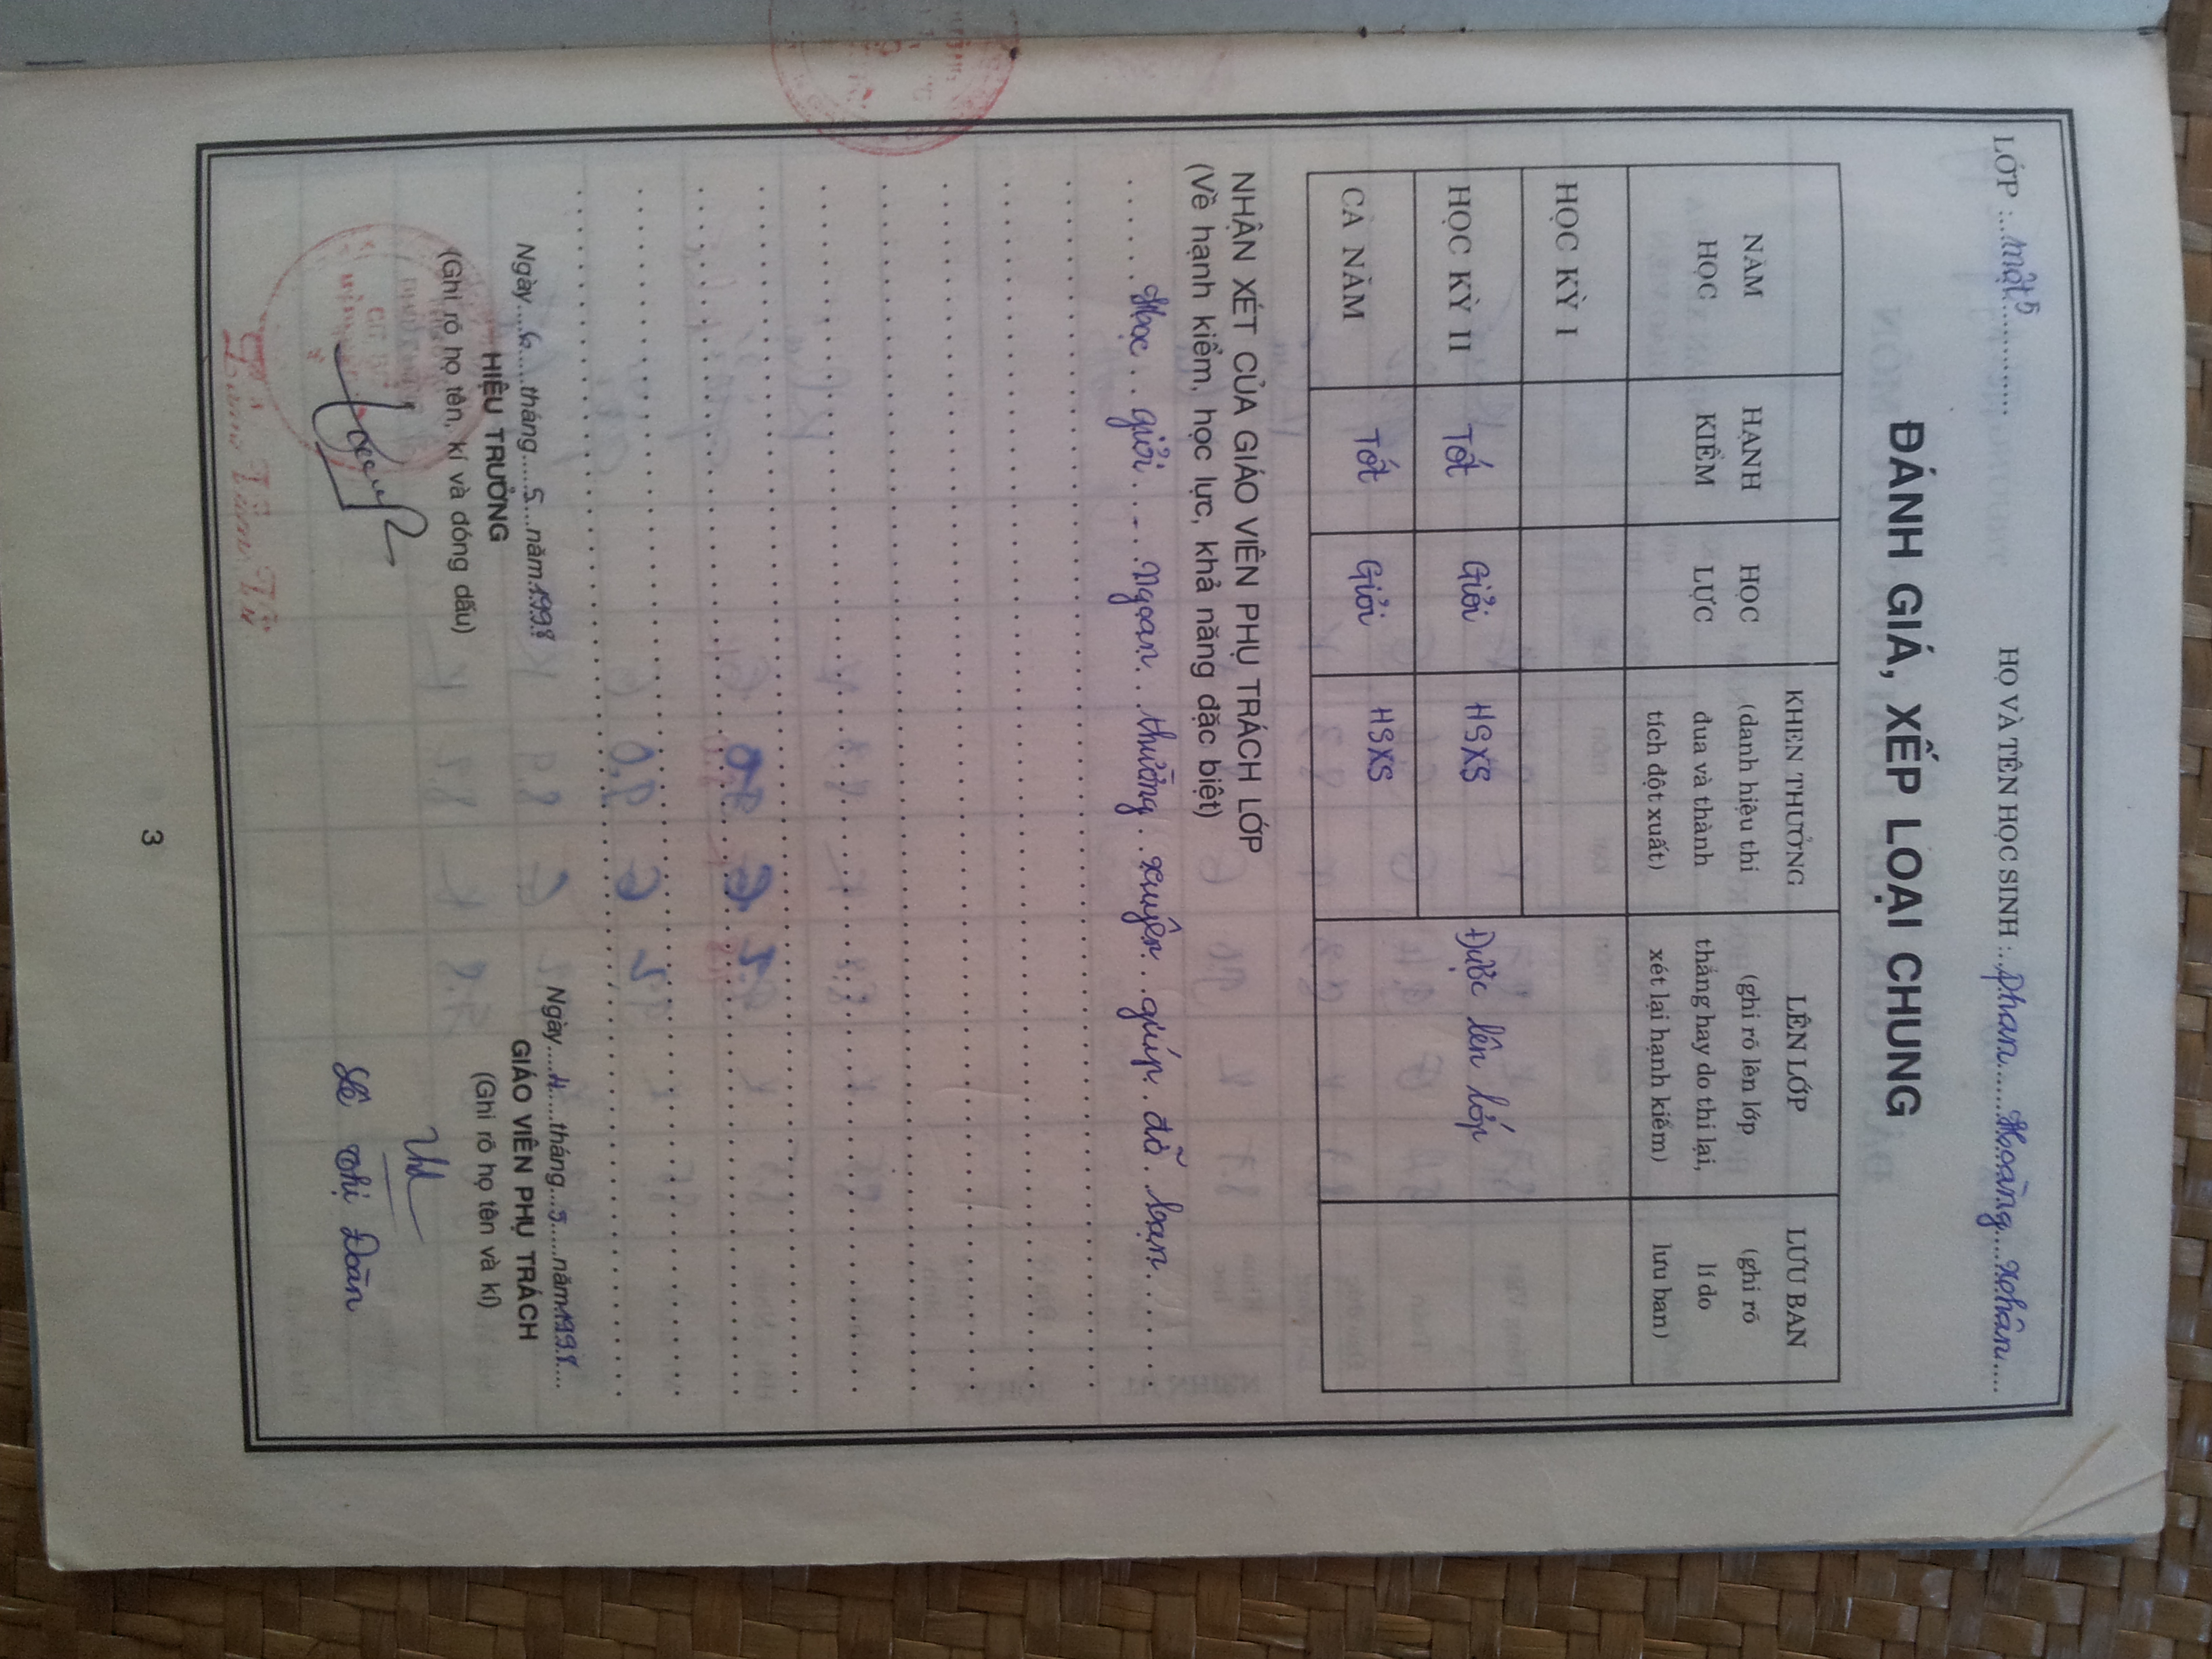 LỚP : một 5 HỌ VÀ TÊN HỌC SINH : Phan Hoàng Nhân
ĐÁNH GIÁ, XẾP LOẠI CHUNG
NĂM HỌC
HẠNH KIỂM
HỌC LỰC
KHEN THƯỞNG
(danh hiệu thi
đua và thành
tích đột xuất)
LÊN LỚP
(ghi rõ lên lớp
thẳng hay do thi lại,
xét lại hạnh kiểm)
LƯU BAN
(ghi rõ
lí do
lưu ban)
HỌC KỲ I
HỌC KỲ II Tốt Giỏi HSXS Được lên lớp
CẢ NĂM Tốt Giỏi HSXS
NHẬN XÉT CỦA GIÁO VIÊN PHỤ TRÁCH LỚP
(Về hạnh kiểm, học lực, khả năng đặc biệt)
Học giỏi - Ngoan thường xuyên giúp đỡ bạn
Ngày 6 tháng 5 năm 1998
HIỆU TRƯỞNG
(Ghi rõ họ tên, kí và đóng dấu)
Ngày 4 tháng 5 năm 1998
GIÁO VIÊN PHỤ TRÁCH
(Ghi rõ họ tên và kí)
Lê Thị Đoàn
3